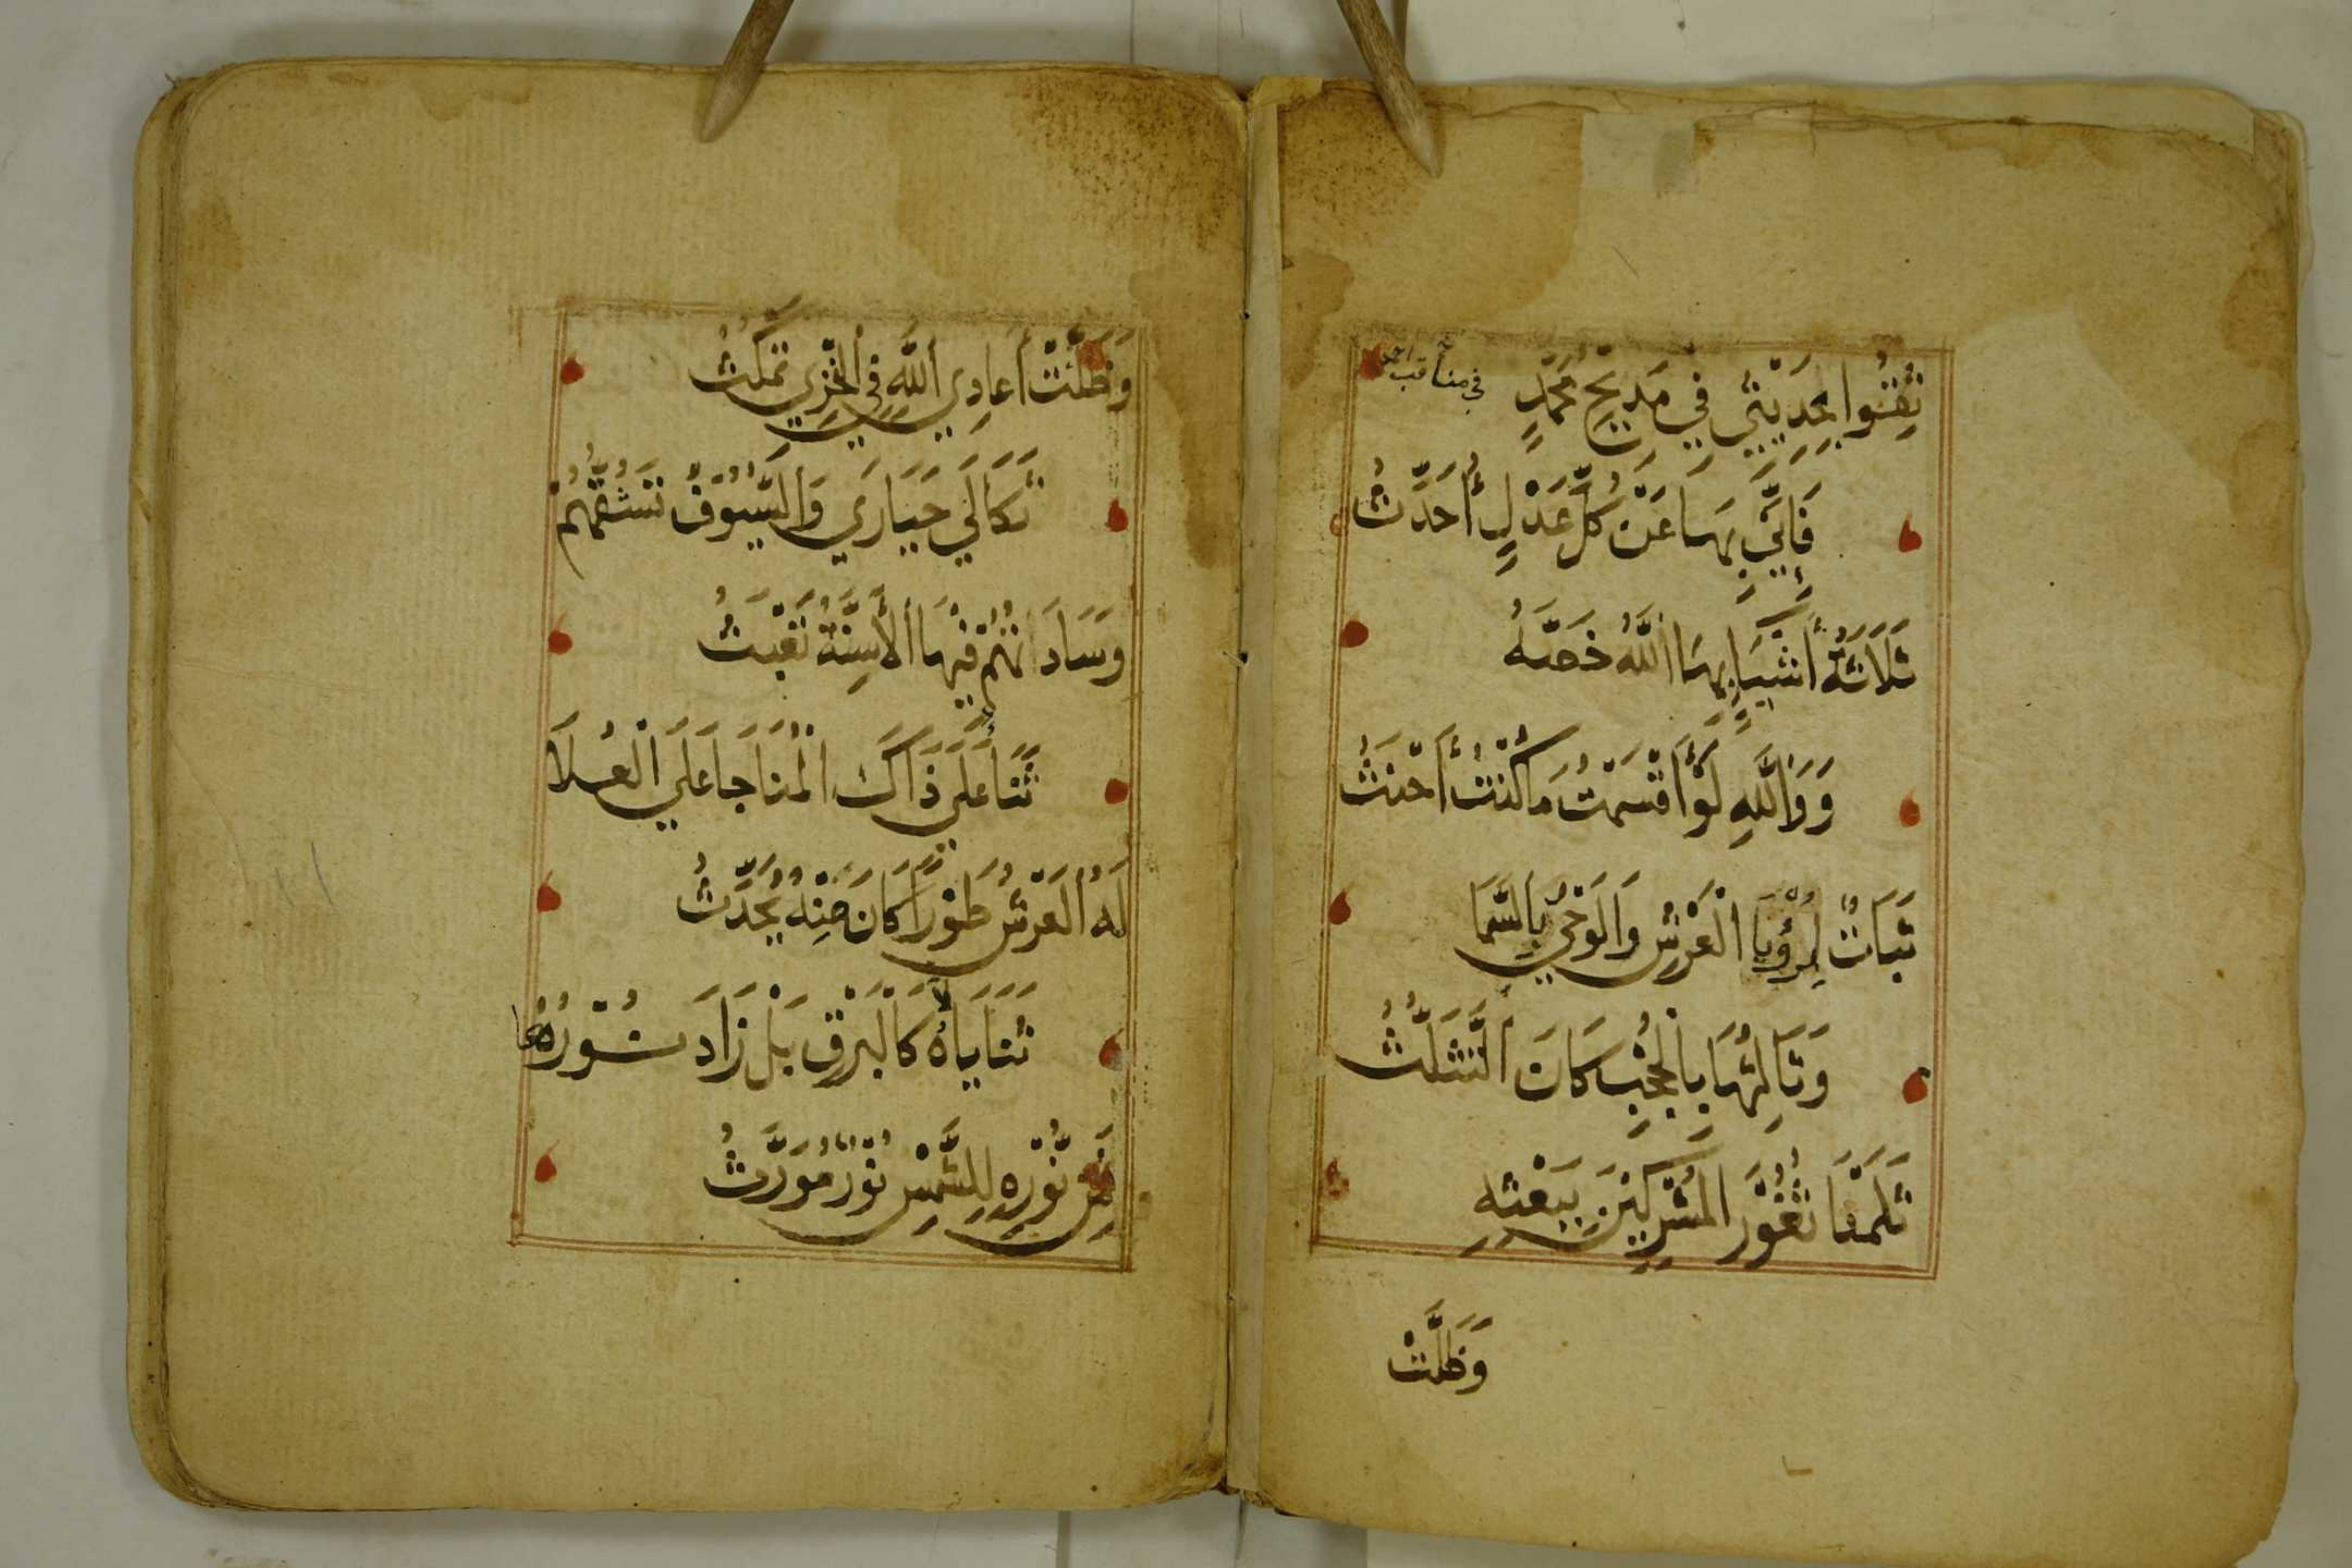 ثِقُوا بِحَدِيثِي فِي مَدِيحِ مُحَمَّدٍ
في مناقب احمد
فَإِنِّي بِهَا عَنْ كُلِّ عَدْلٍ أُحَدِّثُ
ثَلَاثَةُ أَشْيَاءٍ بِهَا اللَّهُ خَصَّهُ
وَوَاللَّهِ لَوْ أَقْسَمْتُ مَا كُنْتُ أَحْنَثُ
ثَبَاتٌ لِرُؤْيَا الْعَرْشِ وَالْوَحْيُ بِالسَّمَا
وَثَالِثُهَا بِالْحُجْبِ كَانَ التَّثَلُّثُ
ثَلَمْنَا ثُغُورَ الْمُشْرِكِينَ بِبَعْثِهِ
وَظَلَّتْ
وَظَلَّتْ أَعَادِي اللَّهِ فِي الْخِزْيِ تَمْكُثُ
ثَكَالَى حَيَارَى وَالسُّيُوفُ تَسُقُّهُمْ
وَسَادَاتُهُمْ فِيهَا الْأَسِنَّةُ تَعْبَثُ
ثَنَا عَلَى ذَاكَ الْمُنَاجَا عَلَى الْعُلَا
لَهُ الْعَرْشُ طُورًا كَانَ مِنْهُ يُحَدَّثُ
ثَنَايَاهُ كَالْبَرْقِ بَلْ زَادَ نُورُهَا
مِنْ نُّورِهِ لِلشَّمْسِ نُورٌ مُوَرَّثُ